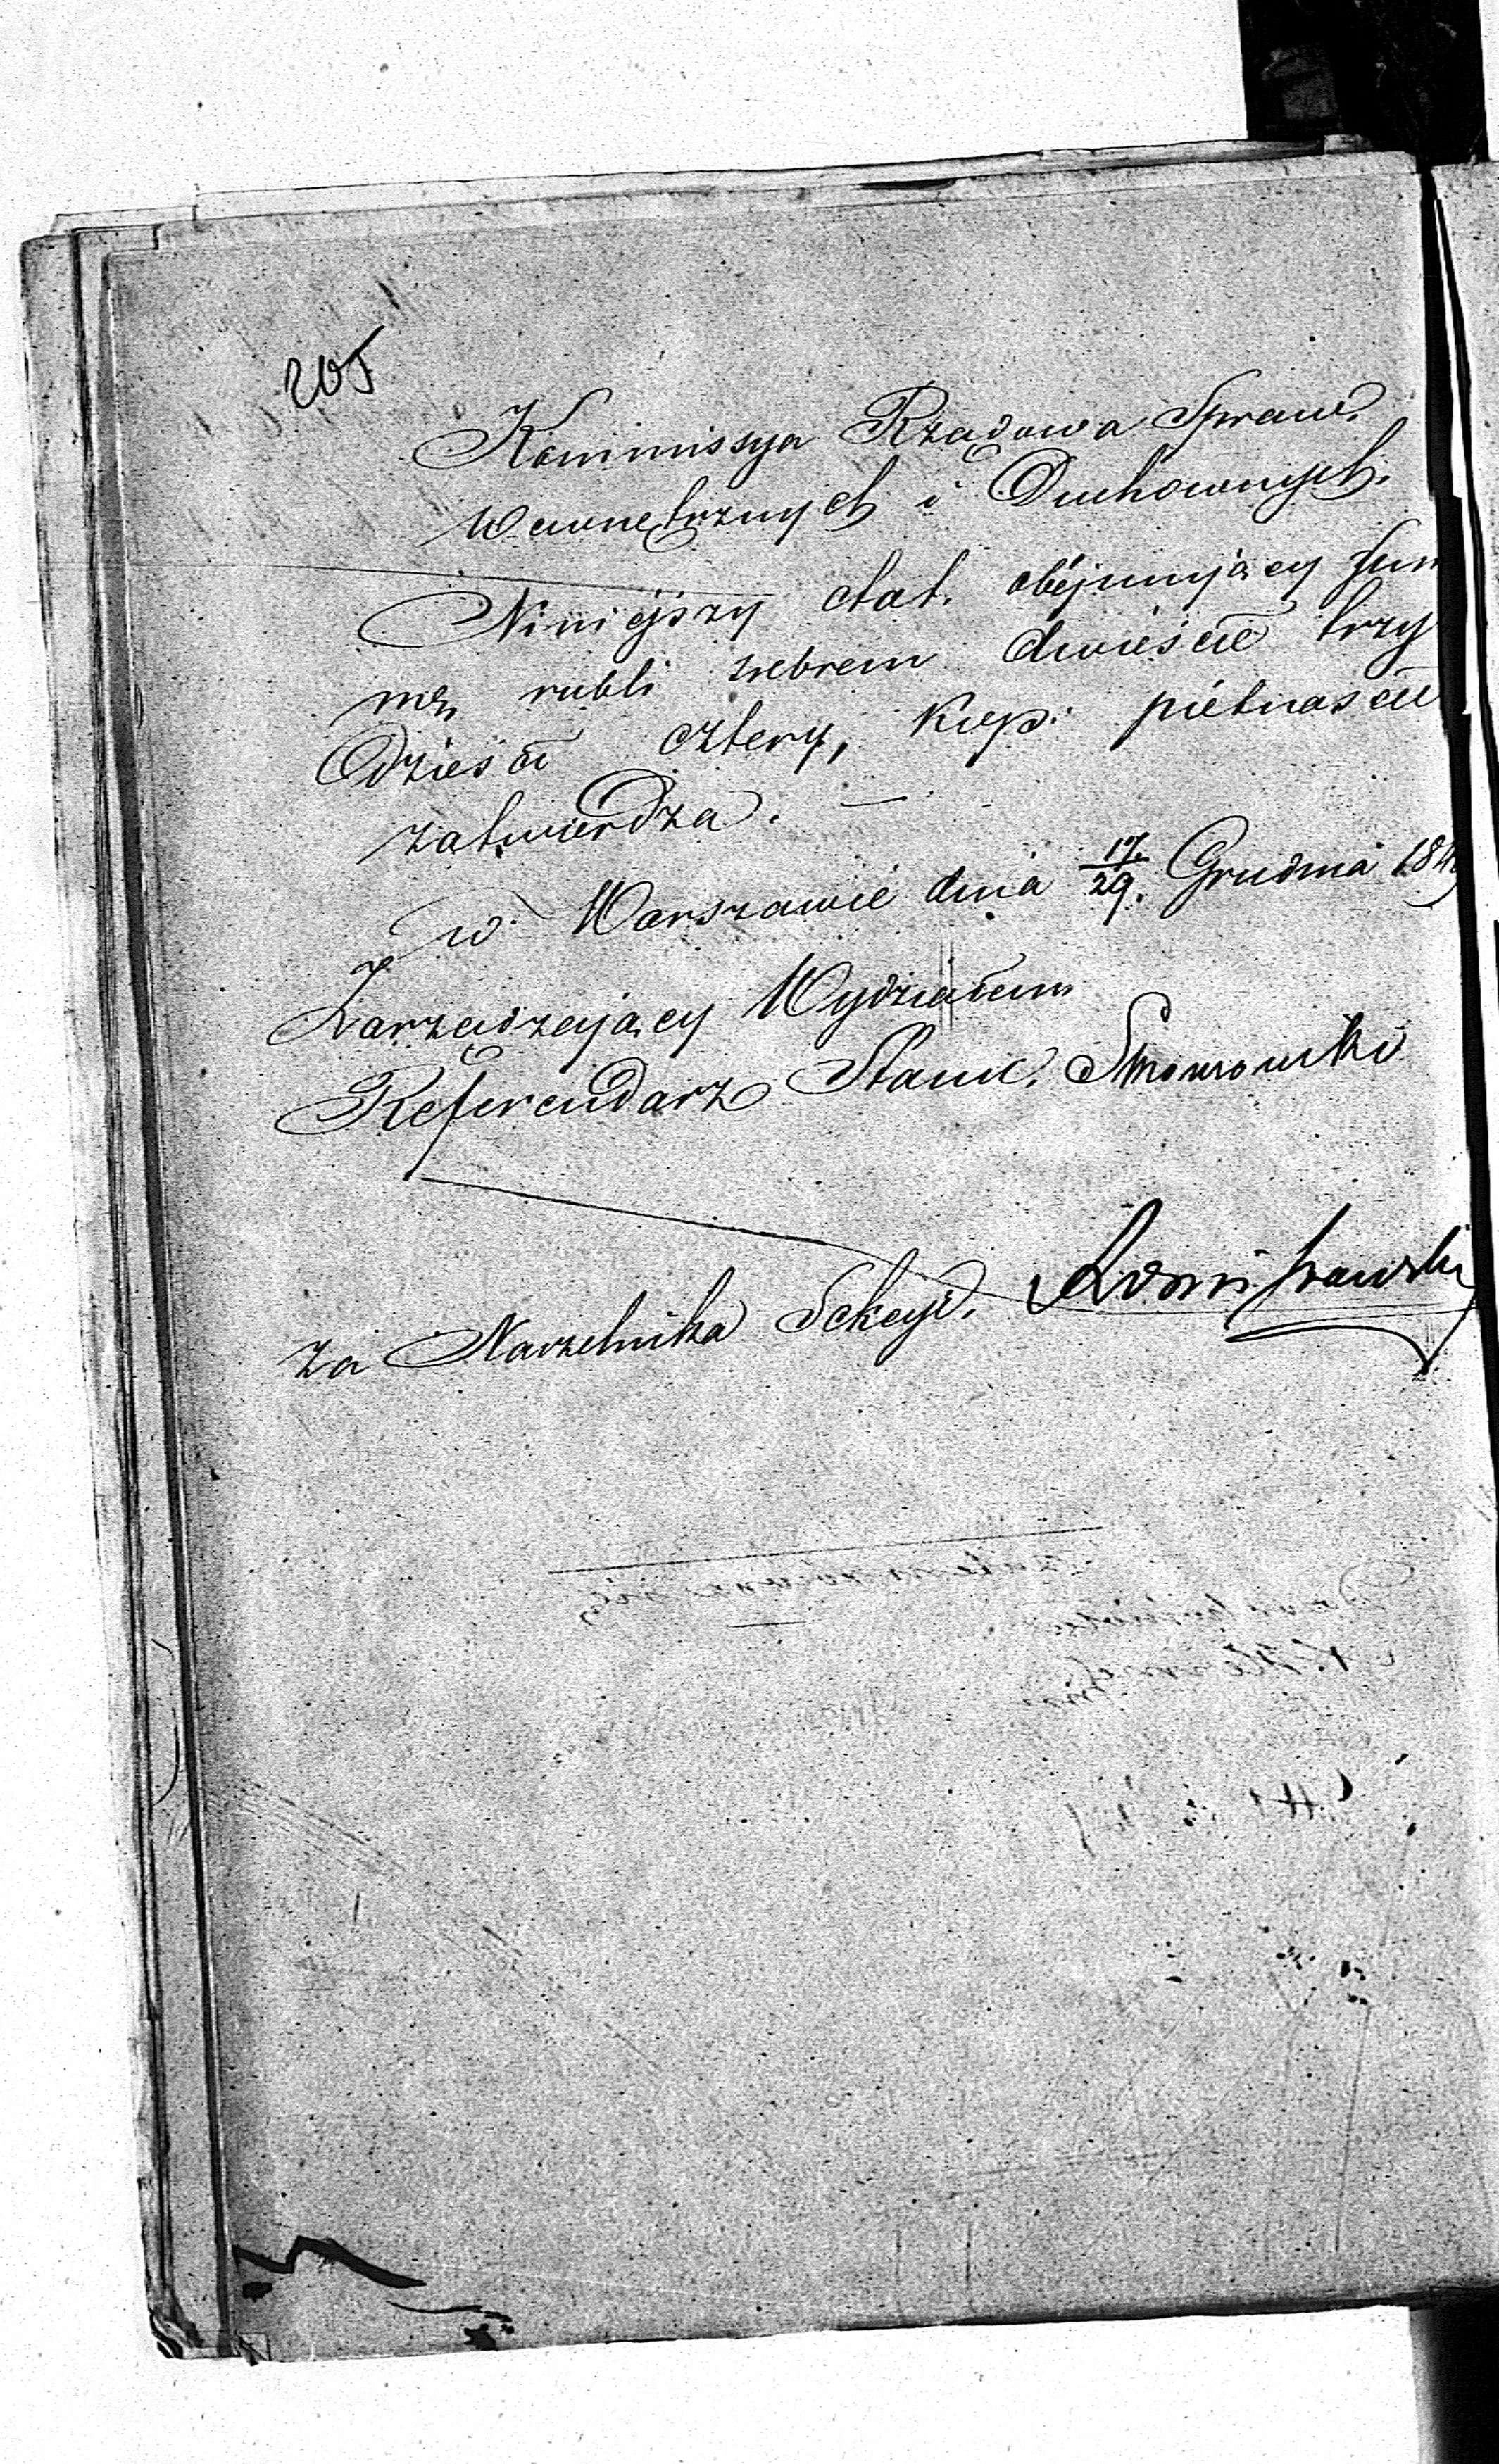 205
Kommissya Rządowa Spraw.
Wewnętrznych i Duchownych.
Niniejszy etat. obéjmujący sum
mę rubli srebrem dwieście trzy
dzieści cztery, kop: piétnaście
zatwierdza. —
w Warszawie dnia 17/29. Grudnia 184
Zarządzający Wydziałem
Referendarz Stanu.
za Naczelnika Sekcyi.